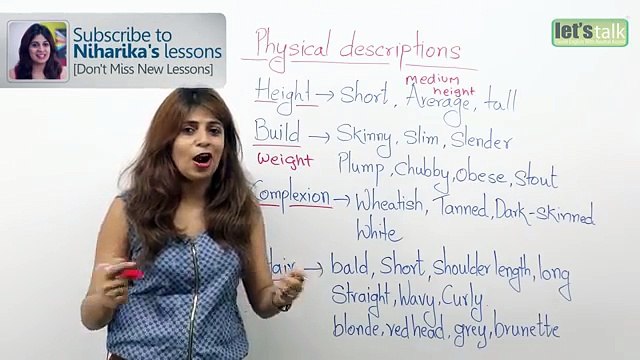 Subscribe to
Niharika's lessons
[Don't Miss New Lessons]
let's talk
Physical descriptions
medium
height
Height → Short, Average, tall
Build → Skinny, Slim, Slender
Weight Plump, Chubby, Obese, Stout
Complexion → Wheatish, Tanned, Dark-skinned
White
Hair → bald, Short, Shoulder length, long
Straight, Wavy, Curly.
blonde, red head, grey, brunette